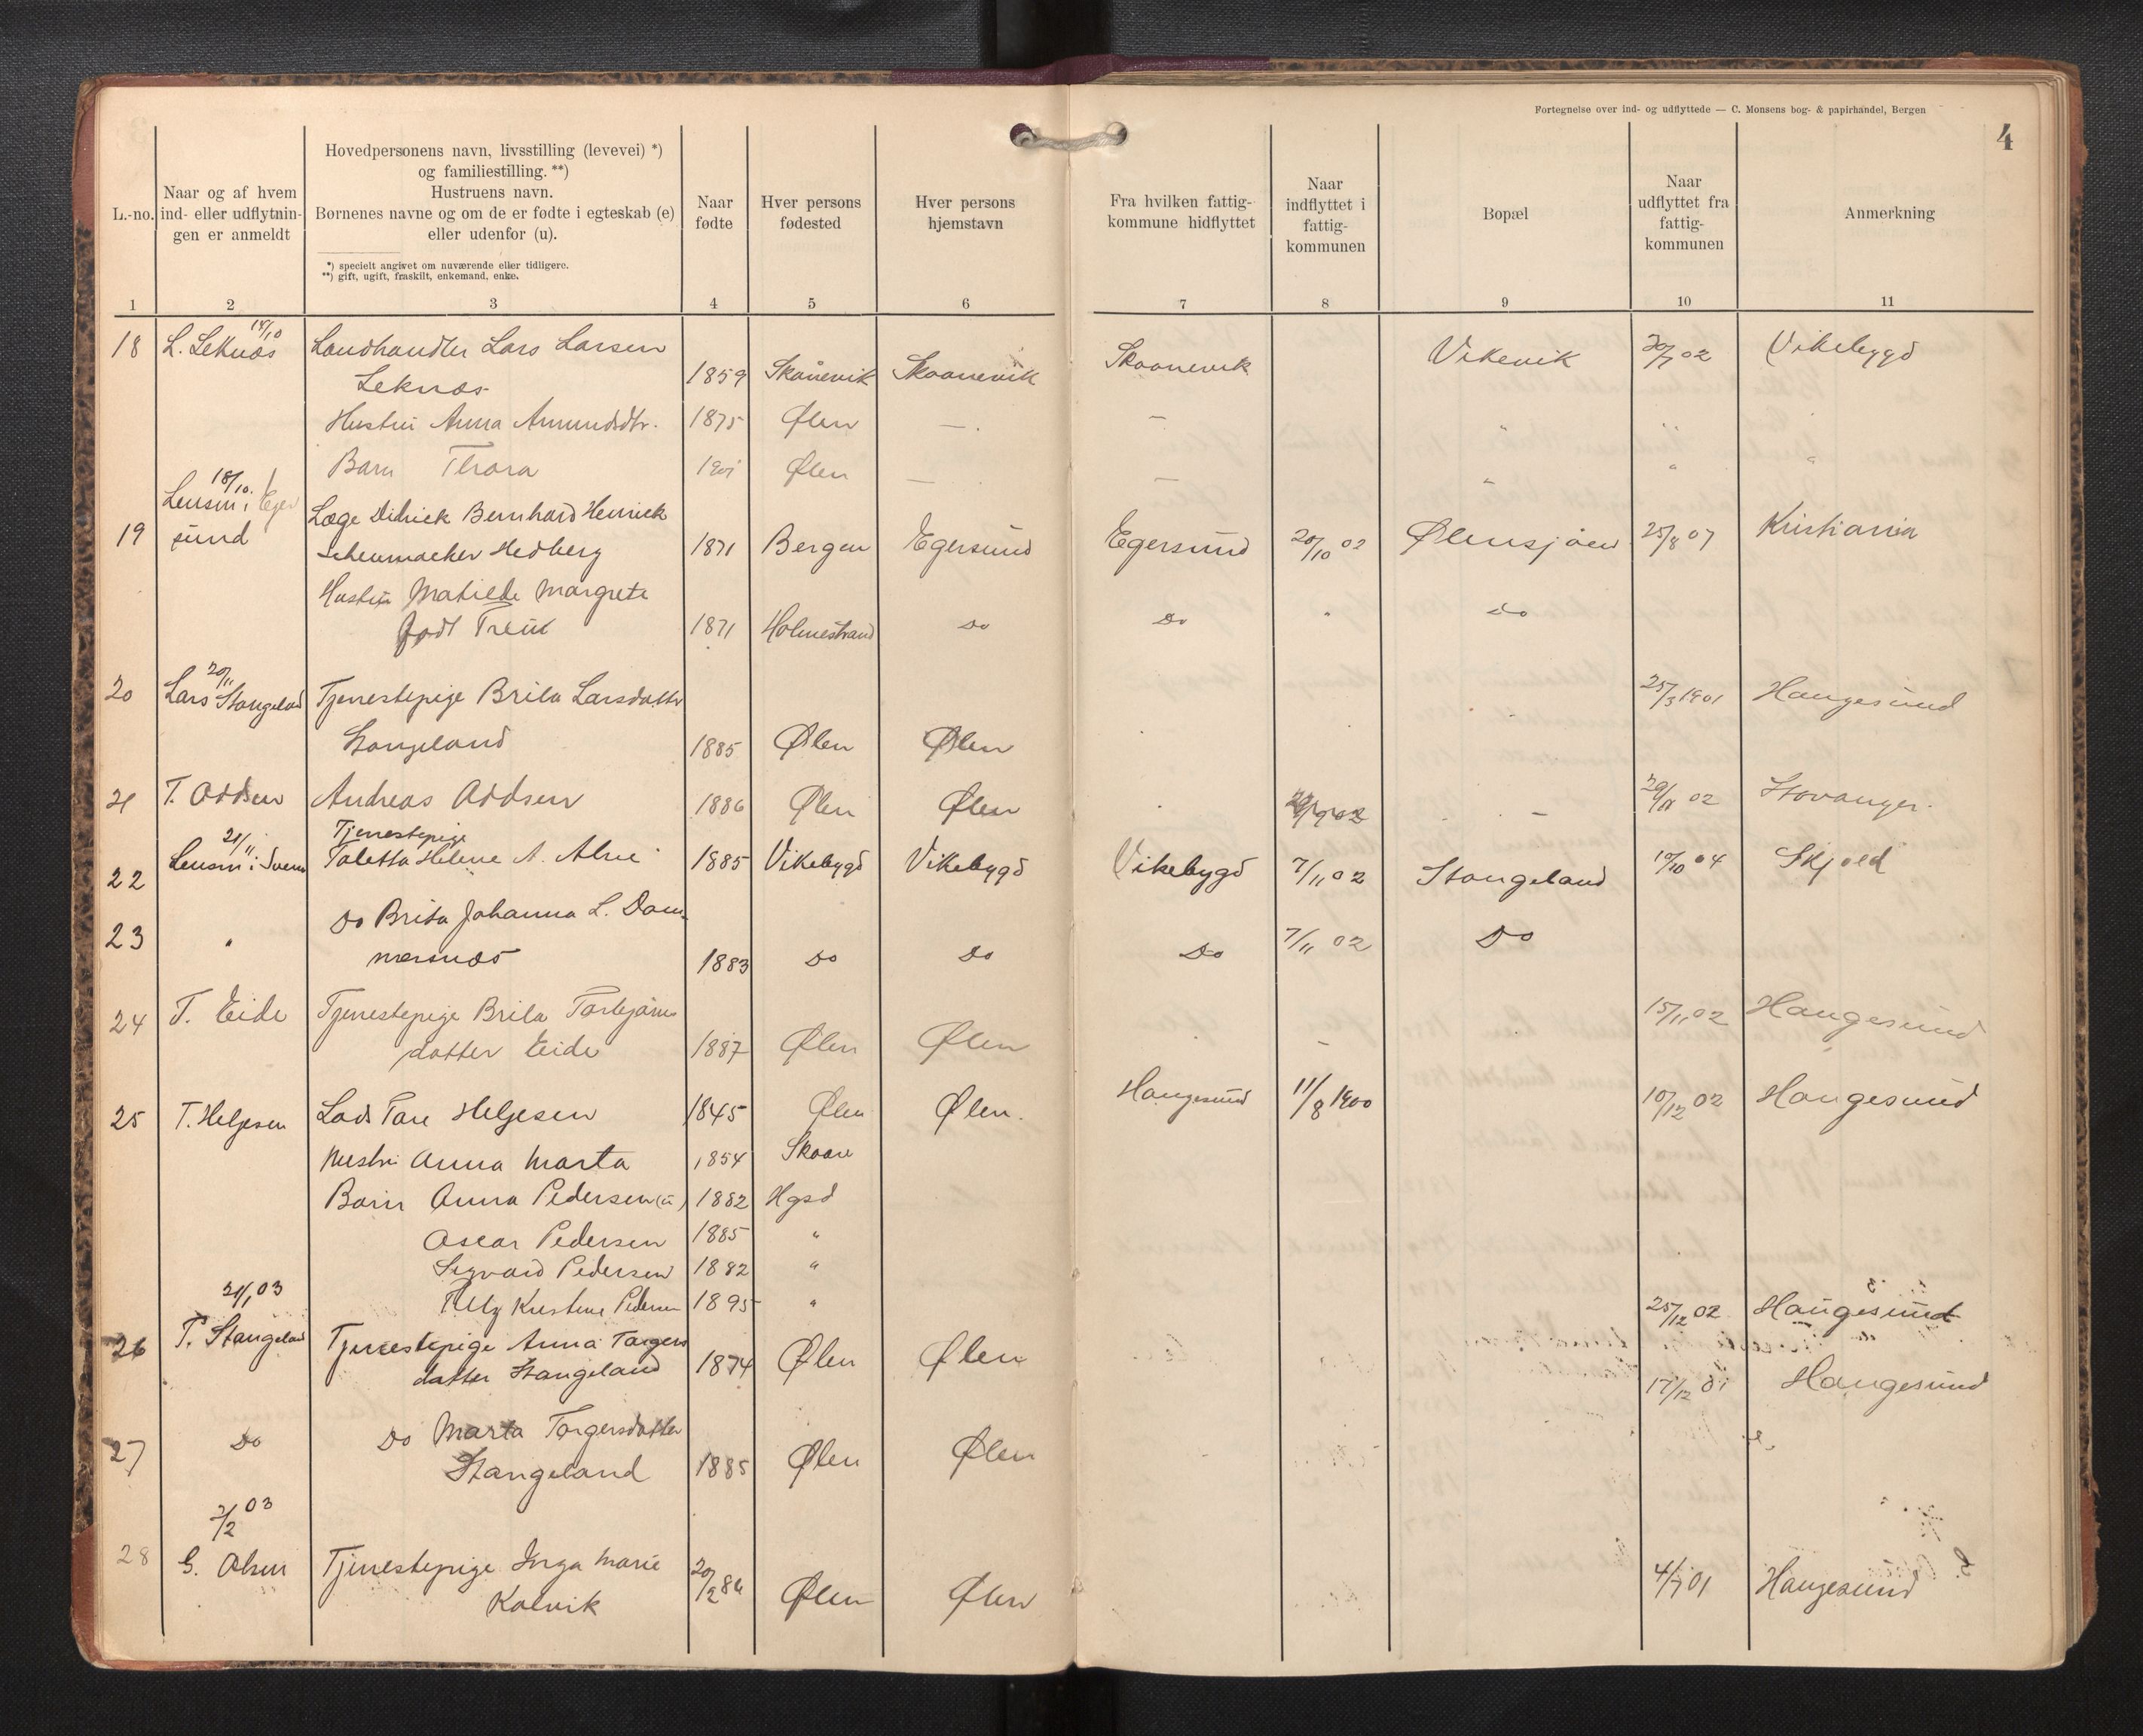 Fortegnelse over ind- og udflyttede — C. Monsens bog- & papirhandel, Bergen
4
L.-no.
Naar og af hvem
ind- eller udflytnin-
gen er anmeldt
Hovedpersonens navn, livsstilling (levevei) *)
og familiestilling. **)
Hustruens navn.
Børnenes navne og om de er fødte i egteskab (e)
eller udenfor (u).
*) specielt angivet om nuværende eller tidligere.
**) gift, ugift, fraskilt, enkemand, enke.
Naar
fødte
Hver persons
fødested
Hver persons
hjemstavn
Fra hvilken fattig-
kommune hidflyttet
Naar
indflyttet i
fattig-
kommunen
Bopæl
Naar
udflyttet fra
fattig-
kommunen
Anmerkning
1 2 3 4 5 6 7 8 9 10 11
18 L. Leknæs Landhandler Lars Larsen
Leknæs 1859 Skånevik Skaanevik Skaanevik Vikevik 30/7 02 Vikebygd
Hustru Anna Amundsdtr. 1875 Ølen — — " " "
Barn Thora 1901 Ølen — — " " "
18/10.
Lensm i Eger
19 sund Læge Didrick Bernhard Henrick
Hedberg 1871 Bergen Egersund Egersund 20/10 02 Ølensjøen 25/8 07 Kristiania
Hustru Matilde Margrete
født 1871 Holmestrand Do Do " Do
20/11
20 Lars Stangeland Tjenestepige Brita Larsdatter 25/3 1901 Haugesund
Stangeland 1885 Ølen Ølen
21 T. Oddsen Andreas Oddsen 1886 Ølen Ølen — 02 Stavanger
21/11 Tjenestepige
22 Lensm i Taletta Helene A. 1885 Vikebygd Vikebygd Vikebygd 7/11 02 Stangeland 10/10 04 Skjold
23 " Do Brita Johanna L. Dom-
mersnæs 1883 Do Do Do 7/11 02 Do
24 T. Eide Tjenestepige Brita Torbjørns
datter Eide 1887 Ølen Ølen — 15/11 02 Haugesund
25 T. Helgesen Lods Tore Helgesen 1845 Ølen Ølen. Haugesund 11/8 1900 10/12 02 Haugesund
Hustru Anna Marta 1854 Skaare
Børn Anna Pedersen (u) 1882 Hgsd
Oscar Pedersen 1885 "
Sigvard Pedersen 1882 "
Kristine Pedersen 1895 "
21/1 03 25/12 02 Haugesund
26 T. Stangeland Tjenestepige Anna Torgers
datter Stangeland 1874 Ølen Ølen
17/12 01 Haugesund
27 Do Do Marta Torgersdatter
Stangeland 1885 Ølen Ølen
2/2 03
28 G. Olsen Tjenestepige Inga Marie
Kalvik 20/2 86 Ølen Ølen 4/7 01 Haugesund